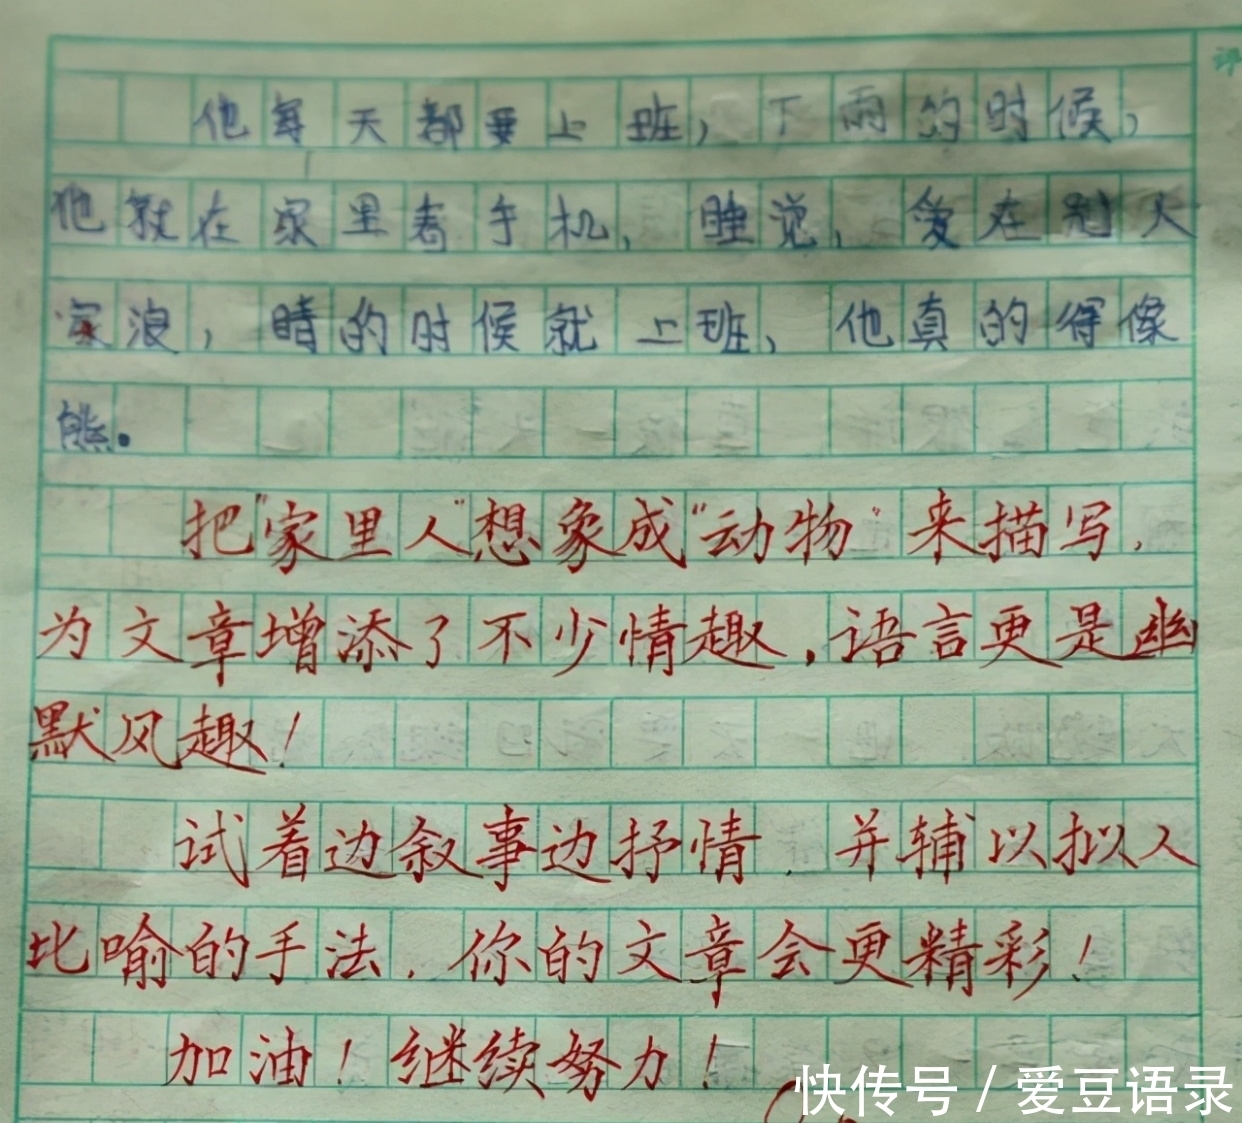 他每天都要上班，下雨的时候，
他就在家里看手机，睡觉，爱在
家浪，晴的时候就上班，他真的得像
熊。
把"家里人"想象成"动物"来描写，
为文章增添了不少情趣，语言更是幽
默风趣！
试着边叙事边抒情，并辅以拟人
比喻的手法，你的文章会更精彩！
加油！继续努力！
快传号 / 爱豆语录
评